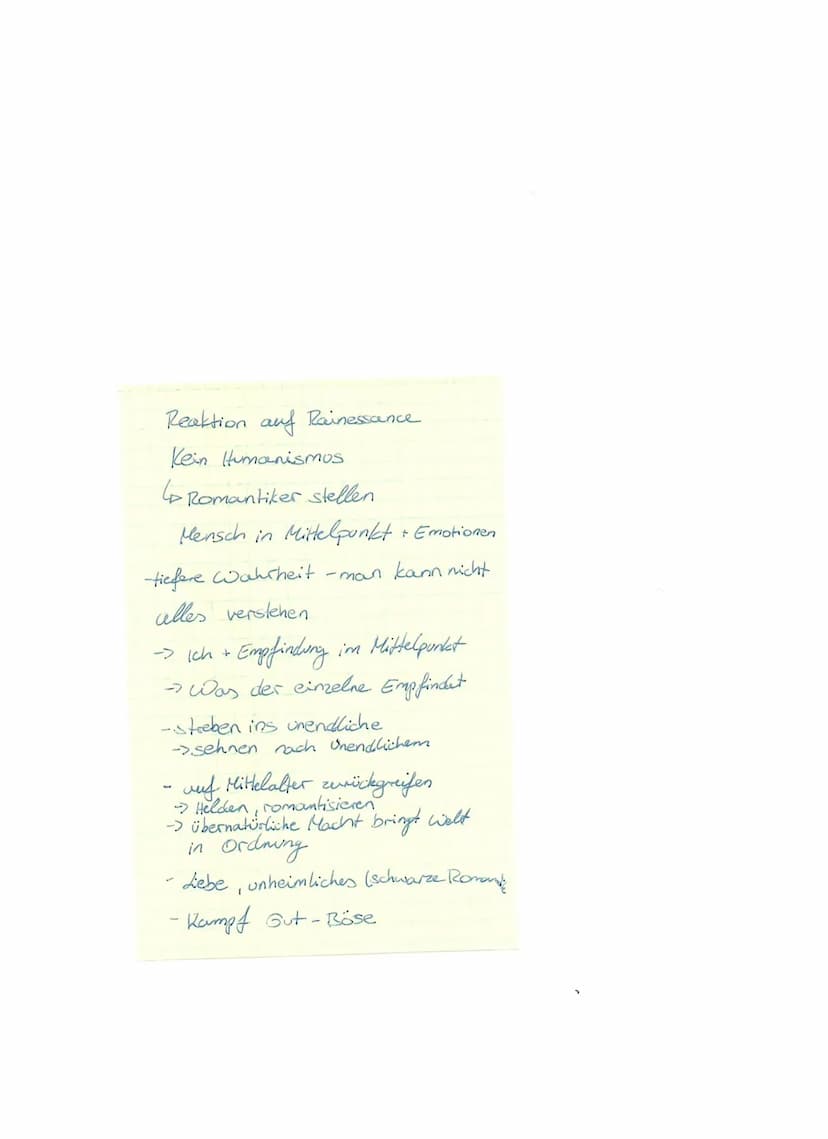 Reaktion auf Rainessance
Kein Humanismos
↳ Romantiker stellen
Mensch in Mittelpunkt + Emotionen
-tiefere Wahrheit - man kann nicht
alles verstehen
-> Ich + Empfindung im Mittelpunkt
-> Was der einzelne Empfindet
- streben ins unendliche
-> sehnen nach Unendlichem
- auf Mittelalter zurückgreifen
-> Helden, romantisieren
-> übernatürliche Macht bringt Welt
in Ordnung
- Liebe, unheimliches (schwarze Romantik
- Kampf Gut - Böse